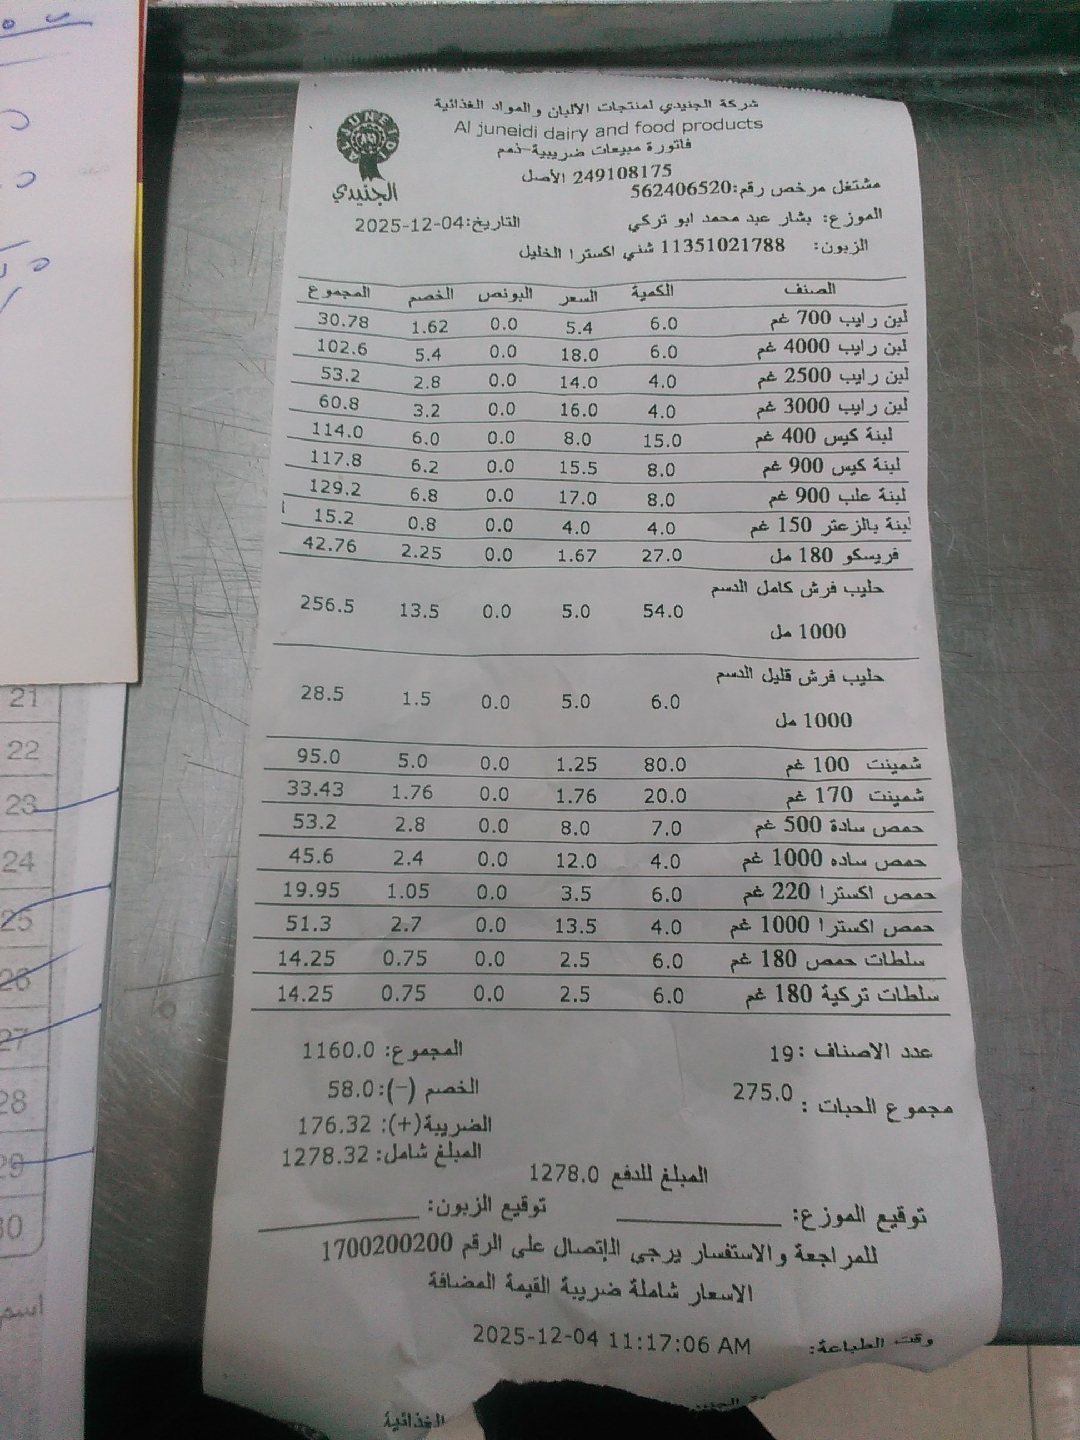 شركة الجنيدي لمنتجات الالبان والمواد الغذائية
Al juneidi dairy and food products
فاتورة مبيعات ضريبية-ذمم
249108175 الأصل
مشتغل مرخص رقم:562406520
الجنيدي
الموزع: بشار عبد محمد ابو تركي التاريخ:2025-12-04
الزبون: 11351021788 شني اكسترا الخليل
الصنف الكمية السعر البونص الخصم المجموع
لبن رايب 700 غم 6.0 5.4 0.0 1.62 30.78
لبن رايب 4000 غم 6.0 18.0 0.0 5.4 102.6
لبن رايب 2500 غم 4.0 14.0 0.0 2.8 53.2
لبن رايب 3000 غم 4.0 16.0 0.0 3.2 60.8
لبنة كيس 400 غم 15.0 8.0 0.0 6.0 114.0
لبنة كيس 900 غم 8.0 15.5 0.0 6.2 117.8
لبنة علب 900 غم 8.0 17.0 0.0 6.8 129.2
لبنة بالزعتر 150 غم 4.0 4.0 0.0 0.8 15.2
فريسكو 180 مل 27.0 1.67 0.0 2.25 42.76
حليب فرش كامل الدسم
1000 مل 54.0 5.0 0.0 13.5 256.5
حليب فرش قليل الدسم
1000 مل 6.0 5.0 0.0 1.5 28.5
شمينت 100 غم 80.0 1.25 0.0 5.0 95.0
شمينت 170 غم 20.0 1.76 0.0 1.76 33.43
حمص سادة 500 غم 7.0 8.0 0.0 2.8 53.2
حمص ساده 1000 غم 4.0 12.0 0.0 2.4 45.6
حمص اكسترا 220 غم 6.0 3.5 0.0 1.05 19.95
حمص اكسترا 1000 غم 4.0 13.5 0.0 2.7 51.3
سلطات حمص 180 غم 6.0 2.5 0.0 0.75 14.25
سلطات تركية 180 غم 6.0 2.5 0.0 0.75 14.25
عدد الاصناف :19 المجموع: 1160.0
مجموع الحبات : 275.0 الخصم (-):58.0
الضريبة(+): 176.32
المبلغ شامل: 1278.32
المبلغ للدفع 1278.0
توقيع الموزع: توقيع الزبون:
للمراجعة والاستفسار يرجى الإتصال على الرقم 1700200200
الاسعار شاملة ضريبة القيمة المضافة
وقت الطباعة: 2025-12-04 11:17:06 AM
الغذائية
21
22
23
24
25
26
27
28
29
30
اسم